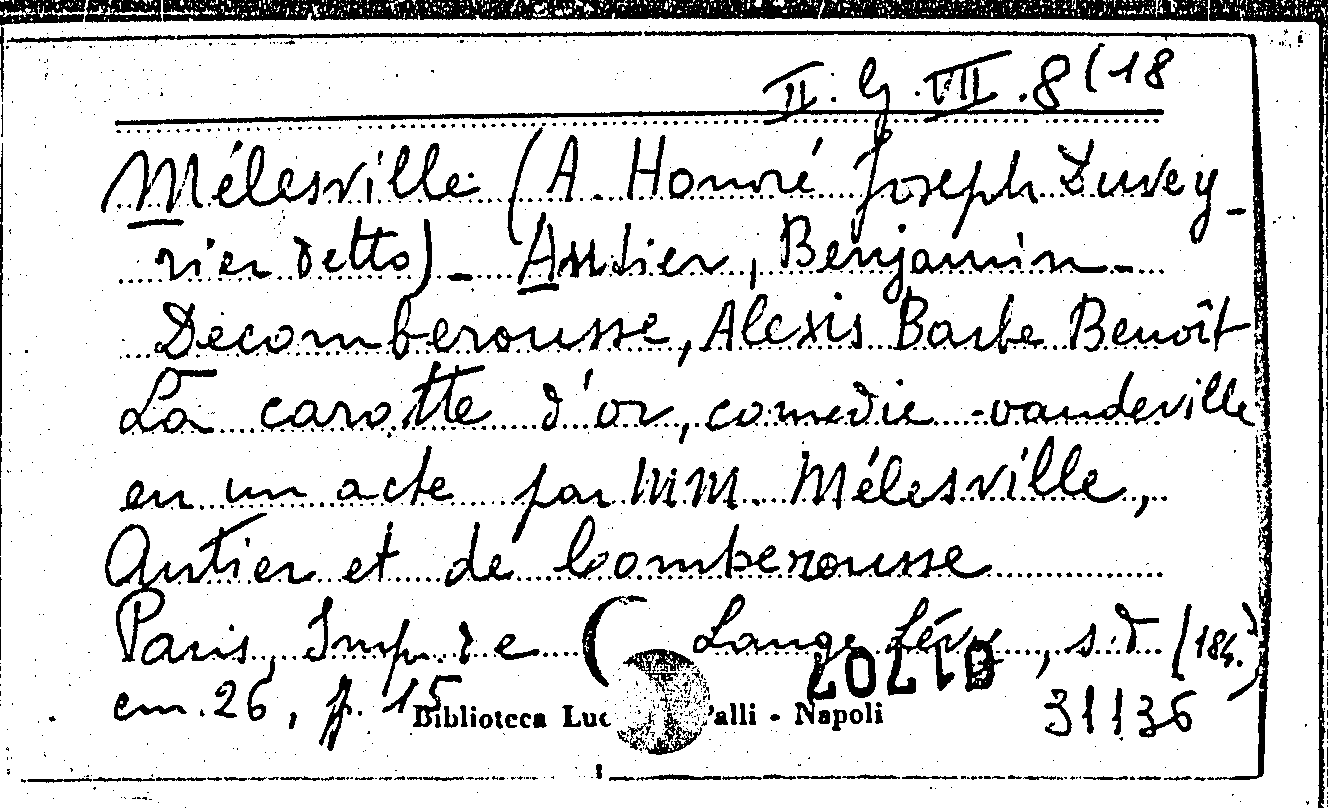 II. G. VII. 8(18
Mélesville (A. Honoré Joseph Duvey-
rier detto) - Antier, Benjamin -
Decomberousse, Alexis Barbe Benoît
La carotte d'or, comedie-vaudeville
en un acte par MM. Mélesville,
Antier et de Comberousse
Paris, Imp. de Lange Lévy, s.d. (184.)
cm. 26, p. 15
Biblioteca Luc alli - Napoli
31136